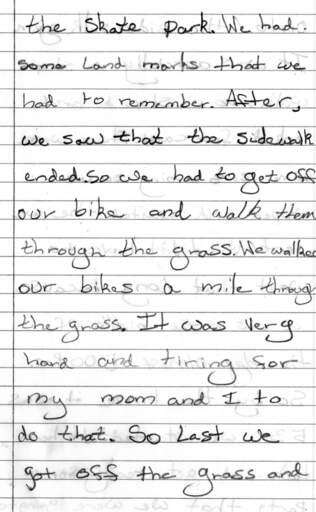 the Skate park. We had.
some Land marks that we
had to remember. After,
we saw that the sidewalk
ended. So we had to get off
our bike and walk them
through the grass. We walked
our bikes a mile through
the grass. It was very
hard and tiring for
my mom and I to
do that. So Last we
got off the grass and